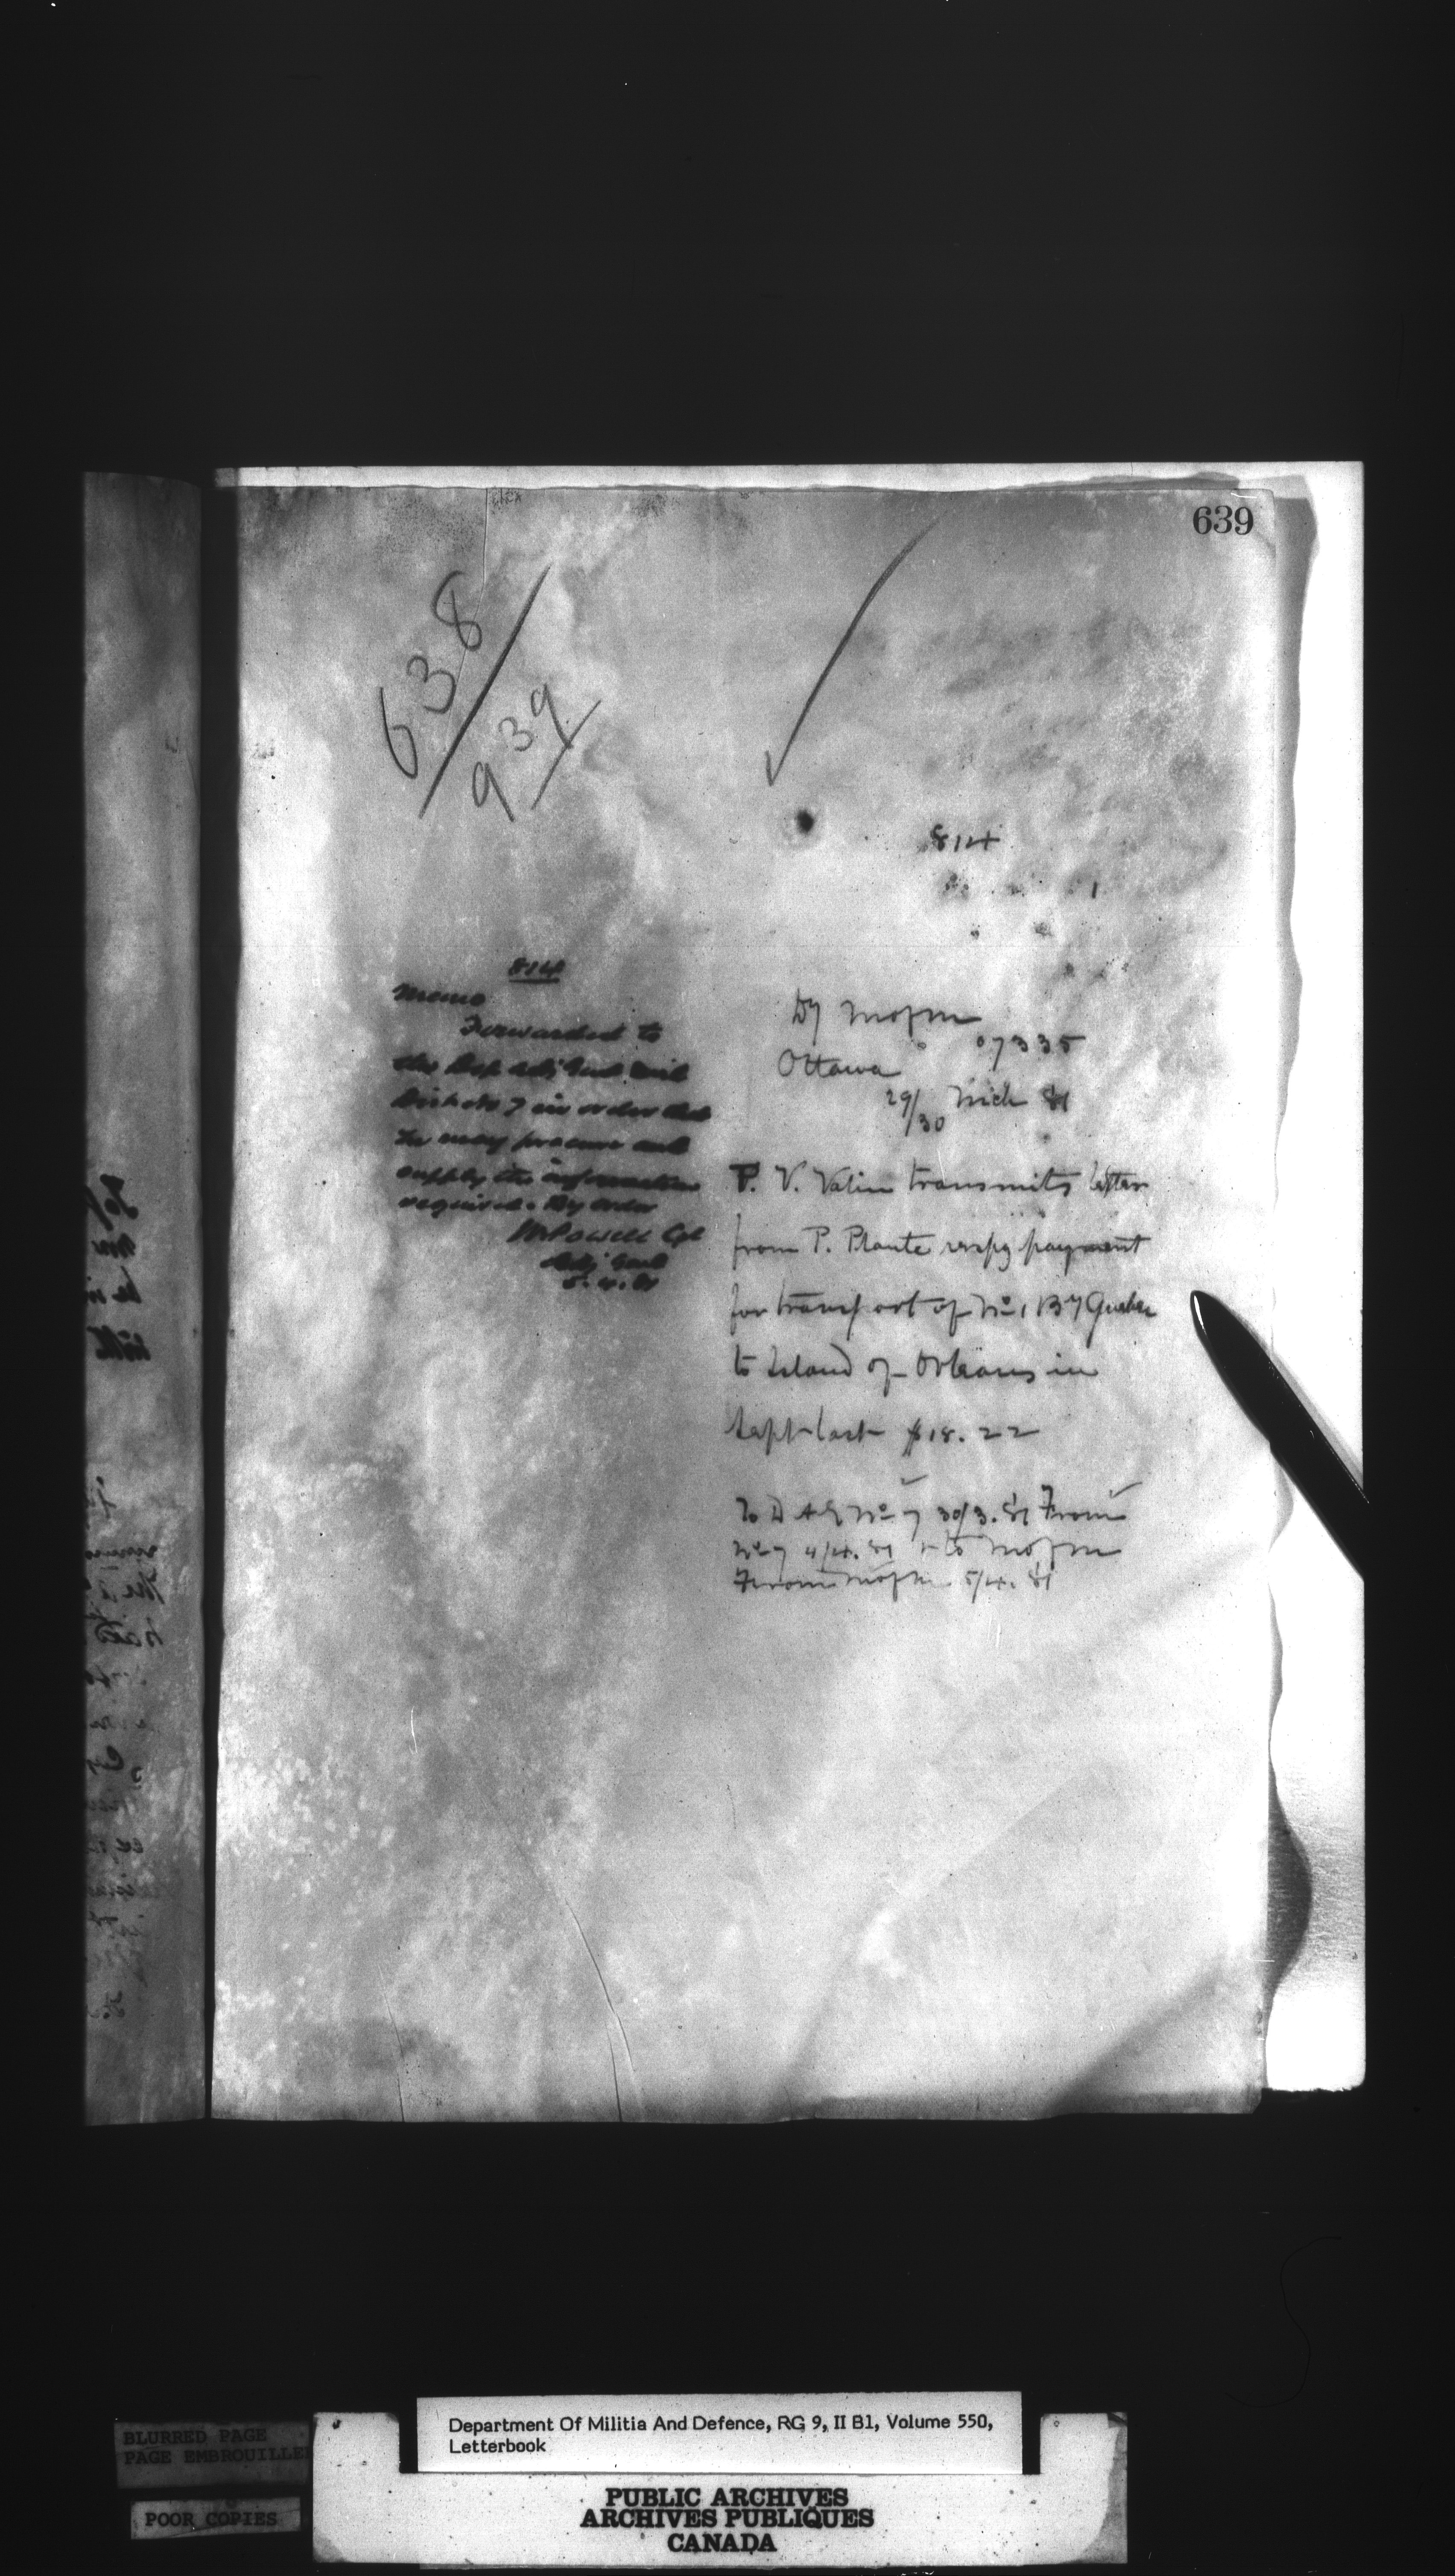 639
638
939
814
814
Memo
Forwarded to
the Dep Adj Genl Mil
Dist No 7 in order that
he may procure and
supply the information
required. By order
W Powell Col
Adj Genl
5.4.81
Dy MofM
07335
Ottawa
29/30 Mch 81
P. V. Valin transmits letter
from P. Plante respg payment
for transport of No 1 By Quebec
to Island of Orleans in
Sept last $18.22
To D A G No 7 30/3.81 From
No 7 4/4.81 & to MofM
From MofM 5/4.81
BLURRED PAGE
PAGE EMBROUILLEE
POOR COPIES
Department Of Militia And Defence, RG 9, II B1, Volume 550,
Letterbook
PUBLIC ARCHIVES
ARCHIVES PUBLIQUES
CANADA